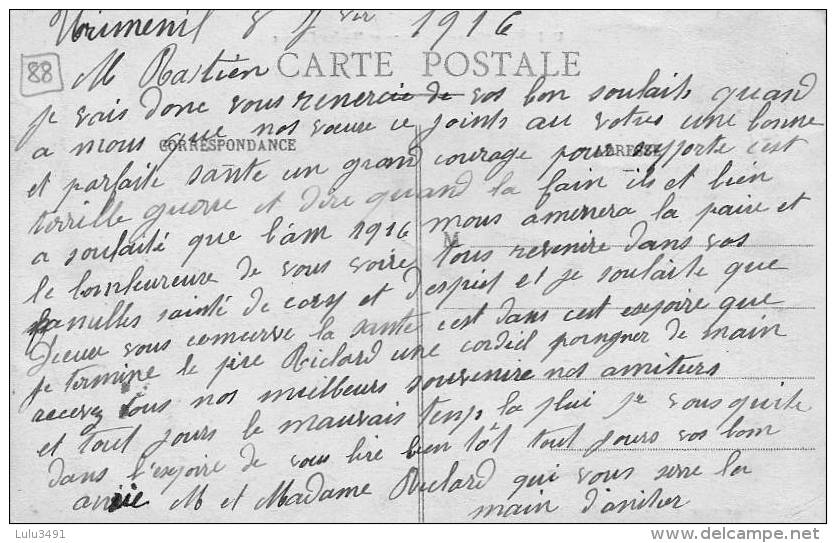 Urimenil 8 Jvier 1916
88
M Bastien
CARTE POSTALE
je vais donc vous remercie de vos bon souhaits quand
a mous que nos voeux ce joints au votres une bonne
CORRESPONDANCE
ADRESSE
et parfaite sante un grand courage pour suporte c'est
terrille guerre et dire quand la fain ils et bien
a souhaité que l'ám 1916 mous amenera la paire et
M
le bomheureuse de vous voire tous revenire dans vos
familles sainté de corp et d'espiet et je souhaite que
Dieux vous comcerve la santé c'est dans cest espoire que
je termine le pére Richard une cordiel poingner de main
recevez tous nos meilleurs souvenire nos amitiers
et tout jours le mauvais temp la plui je vous quite
dans l'espoire de vous lire bien tôt tout jours vos bom
amie M et Madame Richard qui vous serre la
main d'amitier
Lulu3491
delcampe.net